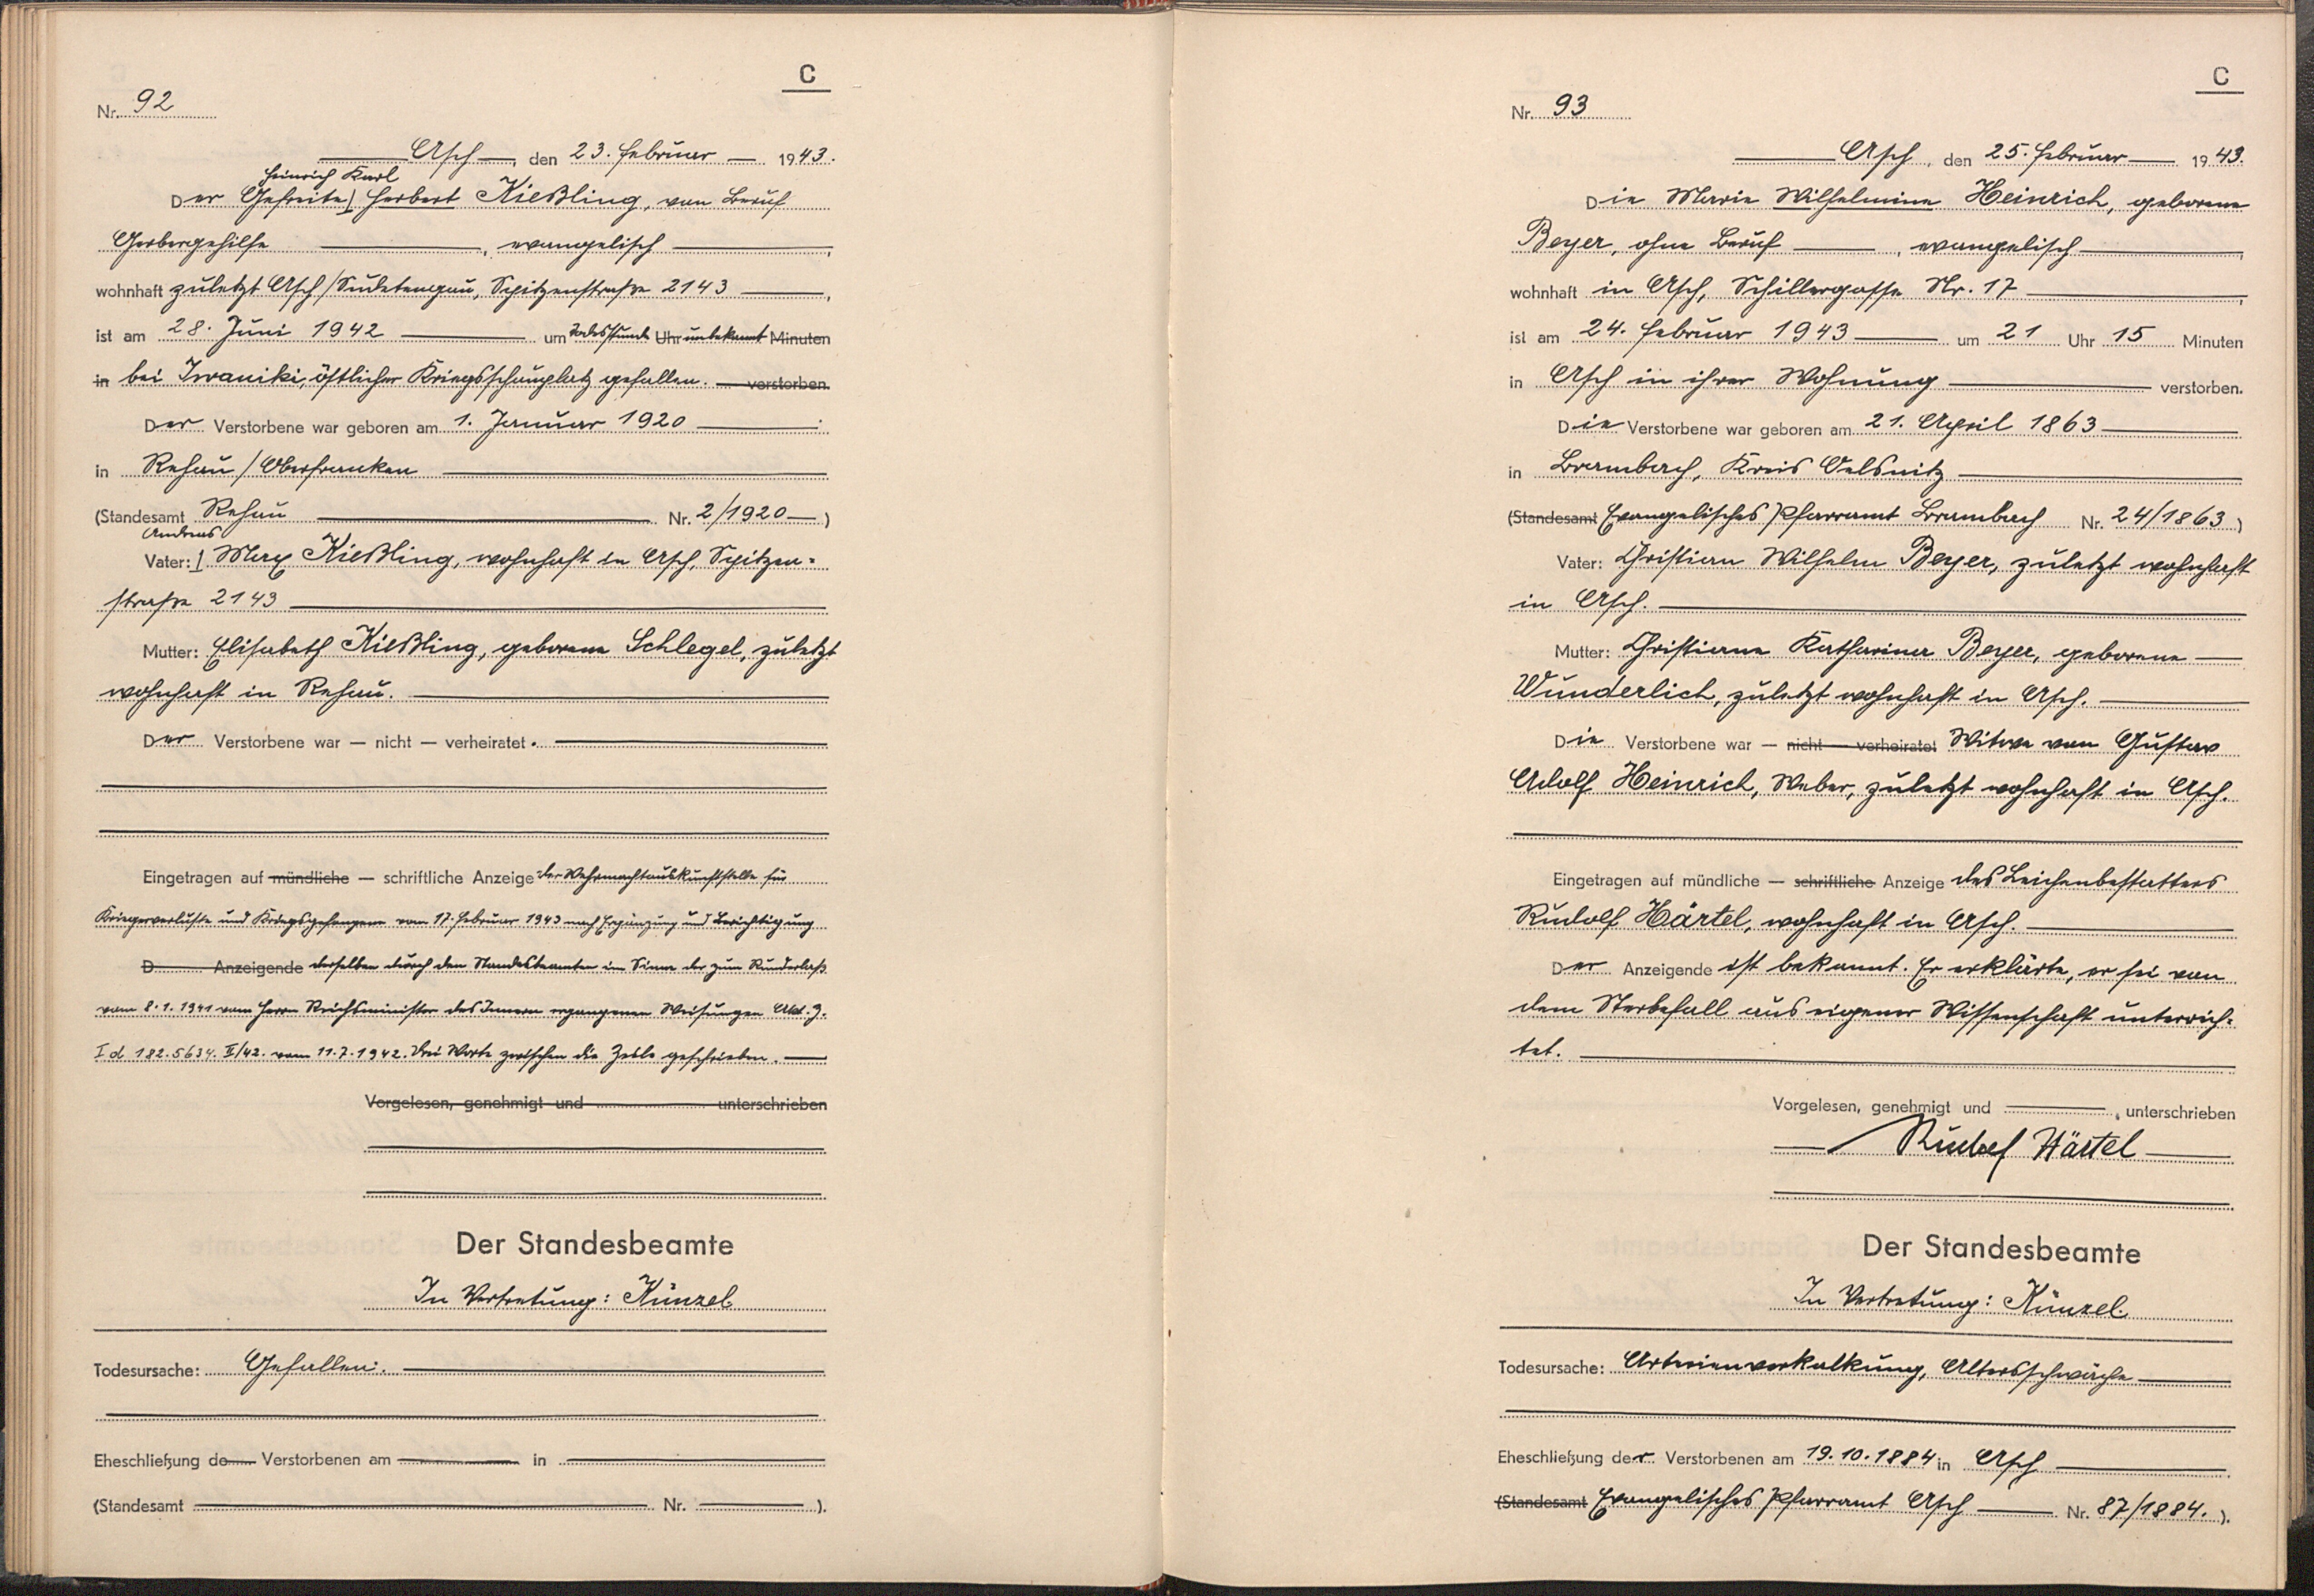 C
Nr. 92
Asch, den 23. Februar 1943.
Heinrich Karl
Der Gefreite Herbert Kießling, von Beruf
Gerbergehilfe, evangelisch,
wohnhaft zuletzt Asch/Sudetengau, Spitzenstraße 2143,
ist am 28. Juni 1942 um Todesstunde Uhr unbekannt Minuten
in bei Iwaniki, östlicher Kriegsschauplatz gefallen. verstorben.
Der Verstorbene war geboren am 1. Januar 1920
in Rehau/Oberfranken
(Standesamt Rehau Nr. 2/1920)
Andreas
Vater: Max Kießling, wohnhaft in Asch, Spitzen=
straße 2143
Mutter: Elisabeth Kießling, geborene Schlegel, zuletzt
wohnhaft in Rehau.
Der Verstorbene war — nicht — verheiratet.
Eingetragen auf mündliche — schriftliche Anzeige der Wehrmachtauskunftstelle für
Kriegerverluste und Kriegsgefangene vom 17. Februar 1943 nach Ergänzung und Berichtigung
D Anzeigende derselben durch den Standesbeamten im Sinne der zum Runderlaß
vom 8.1.1941 vom Herrn Reichsminister des Innern ergangenen Weisungen Akt. Z.
I d 182.5634. II/42. vom 11.7.1942. Drei Worte zwischen die Zeile geschrieben.
Vorgelesen, genehmigt und unterschrieben
Der Standesbeamte
In Vertretung: Künzel
Todesursache: Gefallen.
Eheschließung de Verstorbenen am in
(Standesamt Nr. ).
C
Nr. 93
Asch, den 25. Februar 1943.
Die Marie Wilhelmine Heinrich, geborene
Beyer, ohne Beruf, evangelisch,
wohnhaft in Asch, Schillergasse Nr. 17,
ist am 24. Februar 1943 um 21 Uhr 15 Minuten
in Asch in ihrer Wohnung verstorben.
Die Verstorbene war geboren am 21. April 1863
in Brambach, Kreis Oelsnitz
(Standesamt Evangelisches Pfarramt Brambach Nr. 24/1863)
Vater: Christian Wilhelm Beyer, zuletzt wohnhaft
in Asch.
Mutter: Christiane Katharina Beyer, geborene
Wunderlich, zuletzt wohnhaft in Asch.
Die Verstorbene war — nicht — verheiratet Witwe von Gustav
Adolf Heinrich, Weber, zuletzt wohnhaft in Asch.
Eingetragen auf mündliche — schriftliche Anzeige des Leichenbestatters
Rudolf Härtel, wohnhaft in Asch.
Der Anzeigende ist bekannt. Er erklärte, er sei von
dem Sterbefall aus eigener Wissenschaft unterrich=
tet.
Vorgelesen, genehmigt und, unterschrieben
Rudolf Härtel
Der Standesbeamte
In Vertretung: Künzel.
Todesursache: Arterienverkalkung, Altersschwäche
Eheschließung der Verstorbenen am 19.10.1884 in Asch.
(Standesamt Evangelisches Pfarramt Asch Nr. 87/1884.).